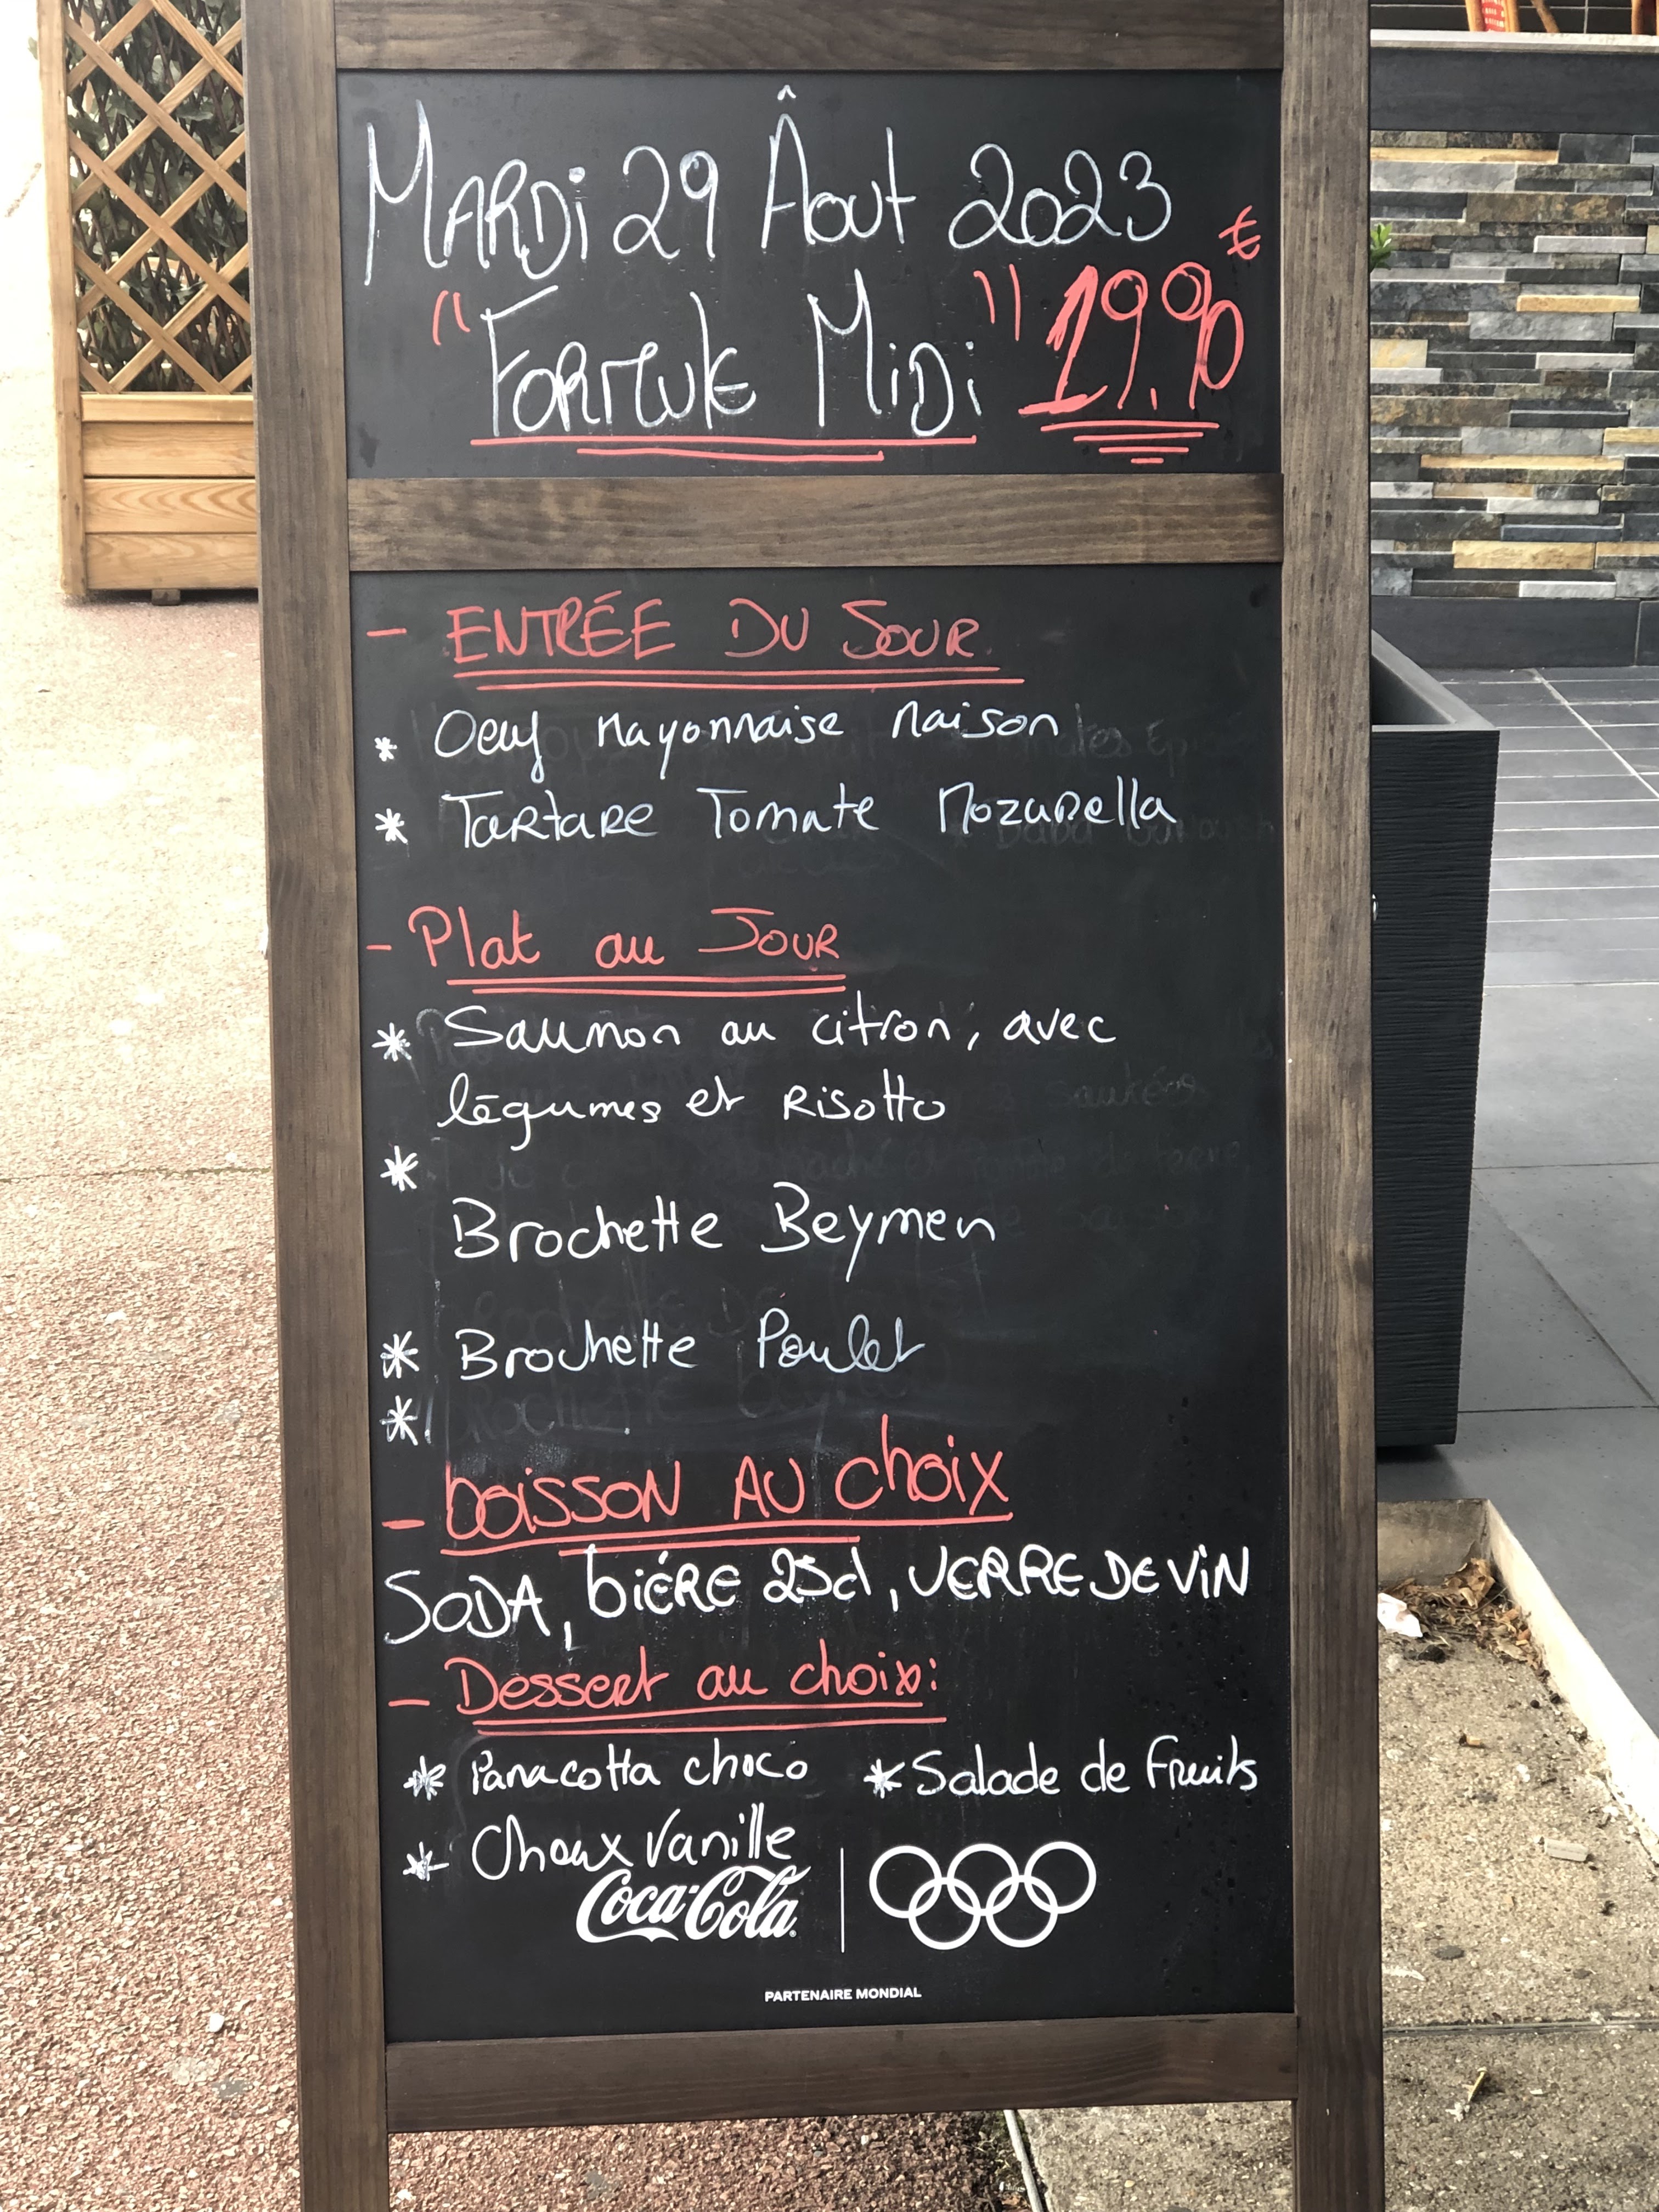 MARDi 29 Âout 2023
"FORMULE MiDi" 19.90 €
- ENTRÉE DU JOUR
* Oeuf Mayonnaise Maison
* Tartare Tomate Mozarella
- Plat au Jour
* Saumon au citron, avec
légumes et Risotto
*
Brochette Beymen
* Brochette Poulet
*
- boisson AU choix
SODA, biére 25cl, VERRE DE ViN
- Dessert au choix:
* Panacotta choco * Salade de Fruits
* Choux Vanille
Coca-Cola
PARTENAIRE MONDIAL